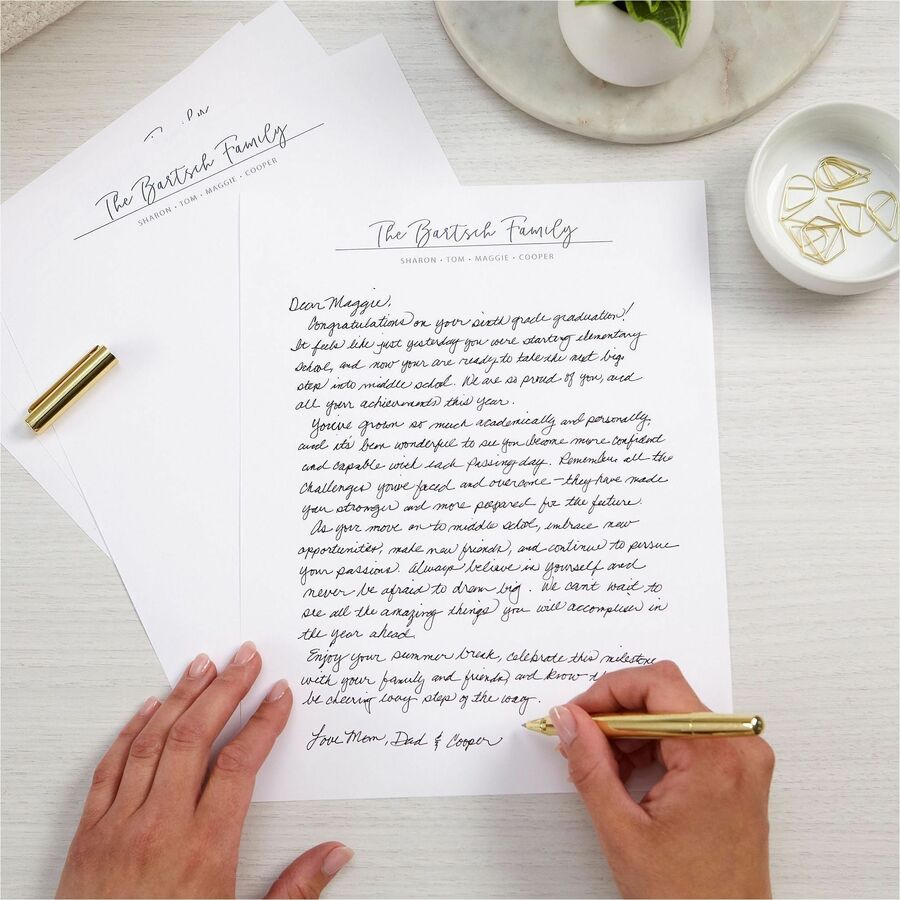 The Bartsch Family
SHARON • TOM • MAGGIE • COOPER
The Bartsch Family
SHARON • TOM • MAGGIE • COOPER
Dear Maggie,
Congratulations on your sixth grade graduation!
It feels like just yesterday you were starting elementary
school, and now your are ready to take the next big
step into middle school. We are so proud of you, and
all your achievements this year.
You've grown so much academically and personally,
and it's been wonderful to see you become more confident
and capable with each passing day. Remember all the
challenges you've faced and overcome - they have made
your stronger and more prepared for the future.
As your move on to middle school, embrace new
opportunities, make new friends, and continue to pursue
your passions. Always believe in yourself and
never be afraid to dream big. We can't wait to
see all the amazing things you will accomplish in
the year ahead.
Enjoy your summer break, celebrate this milestone
with your family and friends, and know
be cheering every step of the way.
Love Mom, Dad & Cooper